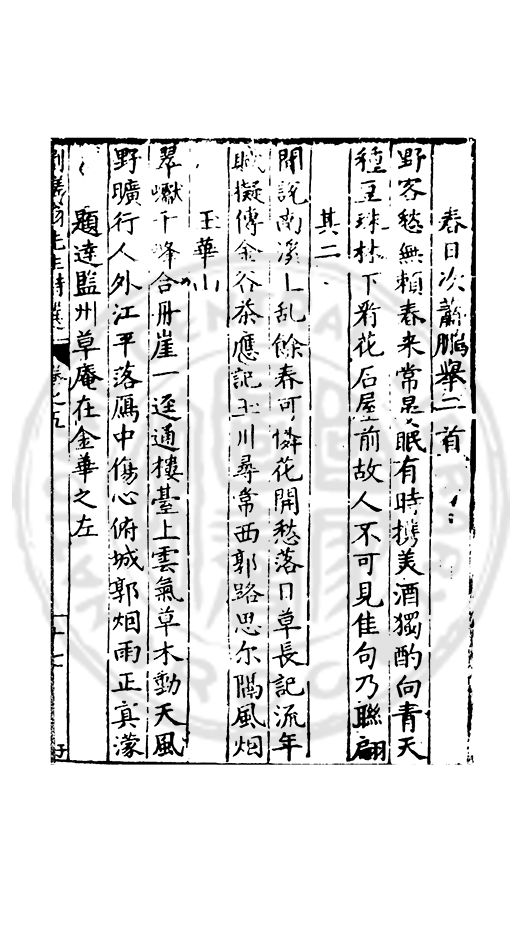 春日次蕭鵬舉二首
野客愁無賴春来常晏眠有時携美酒獨酌向青天
種豆珠林下看花石屋前故人不可見佳句乃聯翩
其二
聞說南溪上乱餘春可憐花開愁落日草長記流年
賦擬傳金谷茶應記玉川尋常西郭路思尔隔風烟
玉華山
翠巘千峰合丹崖一逕通樓臺上雲氣草木動天風
野曠行人外江平落鴈中傷心俯城郭烟雨正冥濛
題達監州草庵在金華之左
先生詩選 卷之五